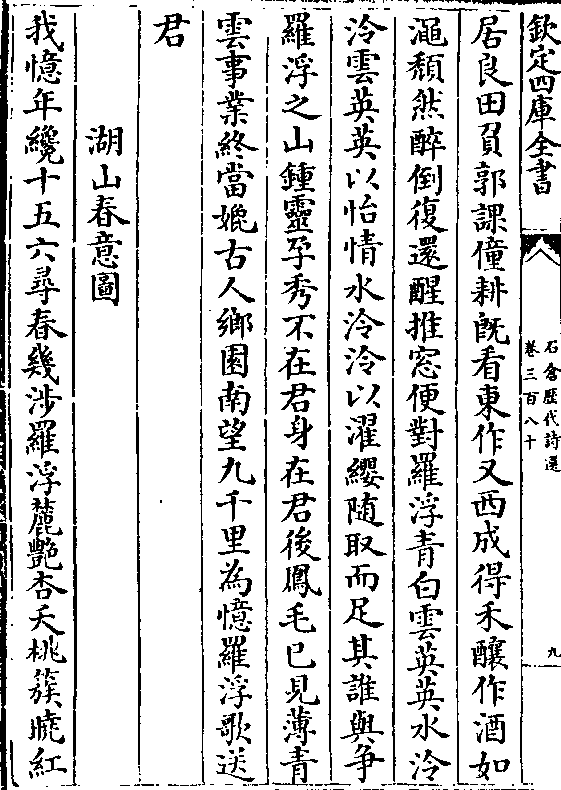 欽定四庫全書
石倉歴代詩選
卷三百八十
九
居良田負郭課僮耕旣看東作又西成得禾釀作酒如
澠頽然醉倒復還醒推窓便對羅浮青白雲英英水泠
泠雲英英以怡情水泠泠以濯纓随取而足其誰與争
羅浮之山鍾靈孕秀不在君身在君後鳳毛已見薄青
雲事業終當媲古人鄉園南望九千里為憶羅浮歌送
君
湖山春意圖
我憶年纔十五六尋春幾涉羅浮麓艷杏夭桃簇曉紅